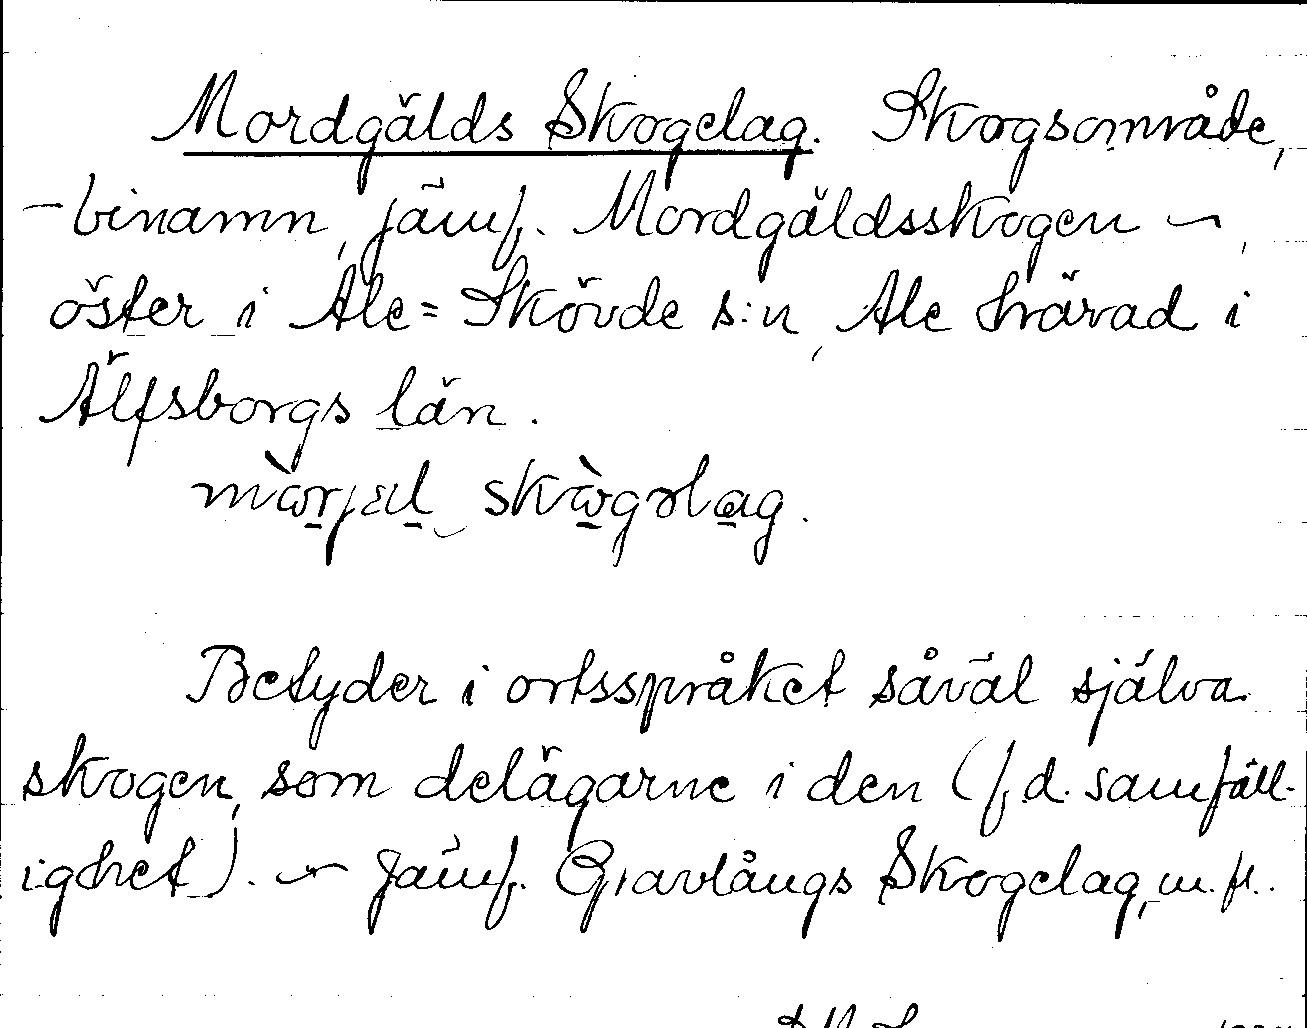 Mordgälds Skogelag. Skogsområde,
– binamn, jämf. Mordgäldsskogen –,
öster i Ale=Skövde s:n, Ale härad i
Älfsborgs län.
skògəlag.
Betyder i ortsspråket såväl själva
skogen, som delägarne i den (f.d. samfäll-
ighet). – Jämf. Gravlångs Skogelag, m. fl.